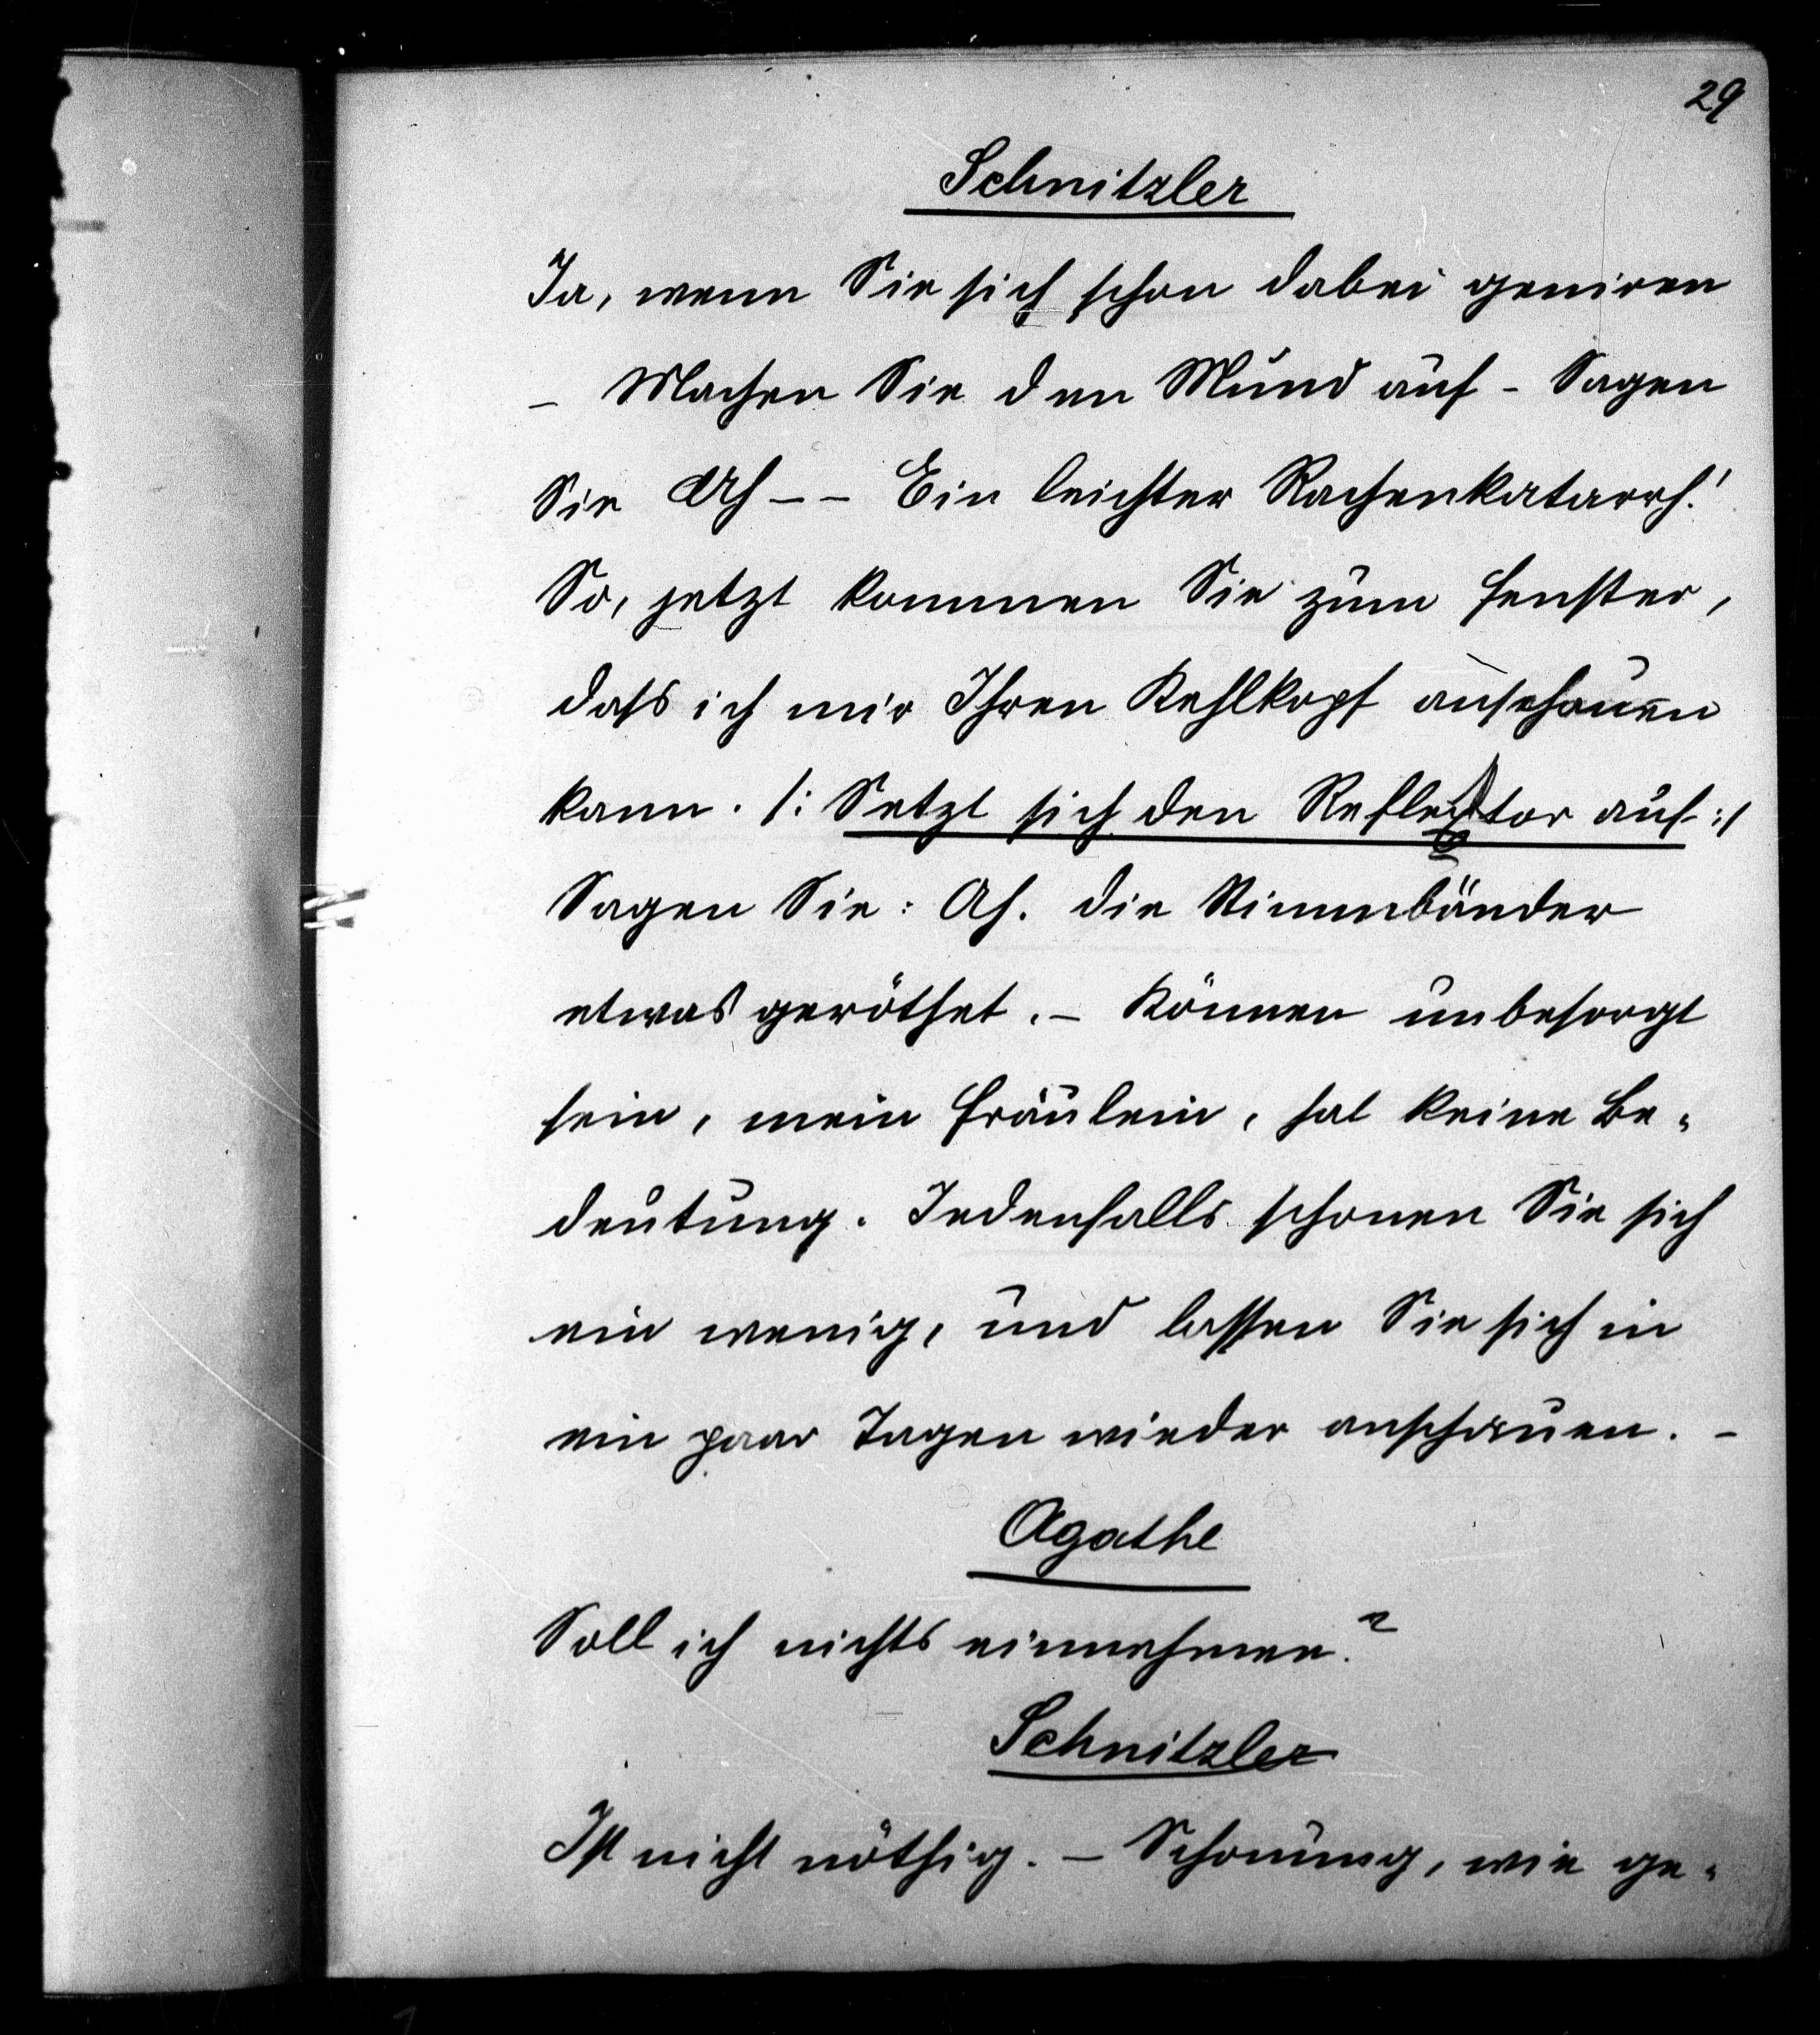 29
Schnitzler
Ja, wenn Sie sich schon dabei geniren
– Machen Sie den Mund auf – Sagen
Sie Ah – – Ein leichter Rachenkatarrh!
So, jetzt kommen Sie zum Fenster,
dass ich mir Ihren Kehlkopf anschauen
kann. /: Setzt sich den Reflector auf :/
Sagen Sie: Ah. Die Stimmbänder
etwas geröthet. – Können unbesorgt
sein, mein Fräulein, hat keine Be-
deutung. Jedenfalls schonen Sie sich
ein wenig, und lassen Sie sich in
ein paar Tagen wieder anschauen. –
Agathe
Soll ich nichts einnehmen?
Schnitzler
Ist nicht nöthig. – Schonung, wie ge-